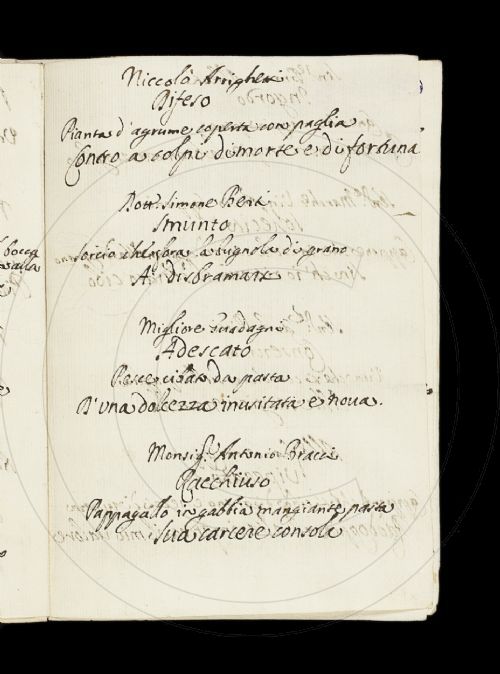 Niccolò Arrighetti
Difeso
Pianta d'agrume coperta con paglia
Contro a colpi di morte e di fortuna
Dott. Simone Berti
Smunto
la di grano
A disbramare
Migliore Guadagni
Adescato
Pesce cibato da pasta
D'una dolcezza inusitata e nova.
Monsig.r Antonio Bracci
Racchiuso
Pappagallo in gabbia mangiante pasta
Sua carcere consola
bocca